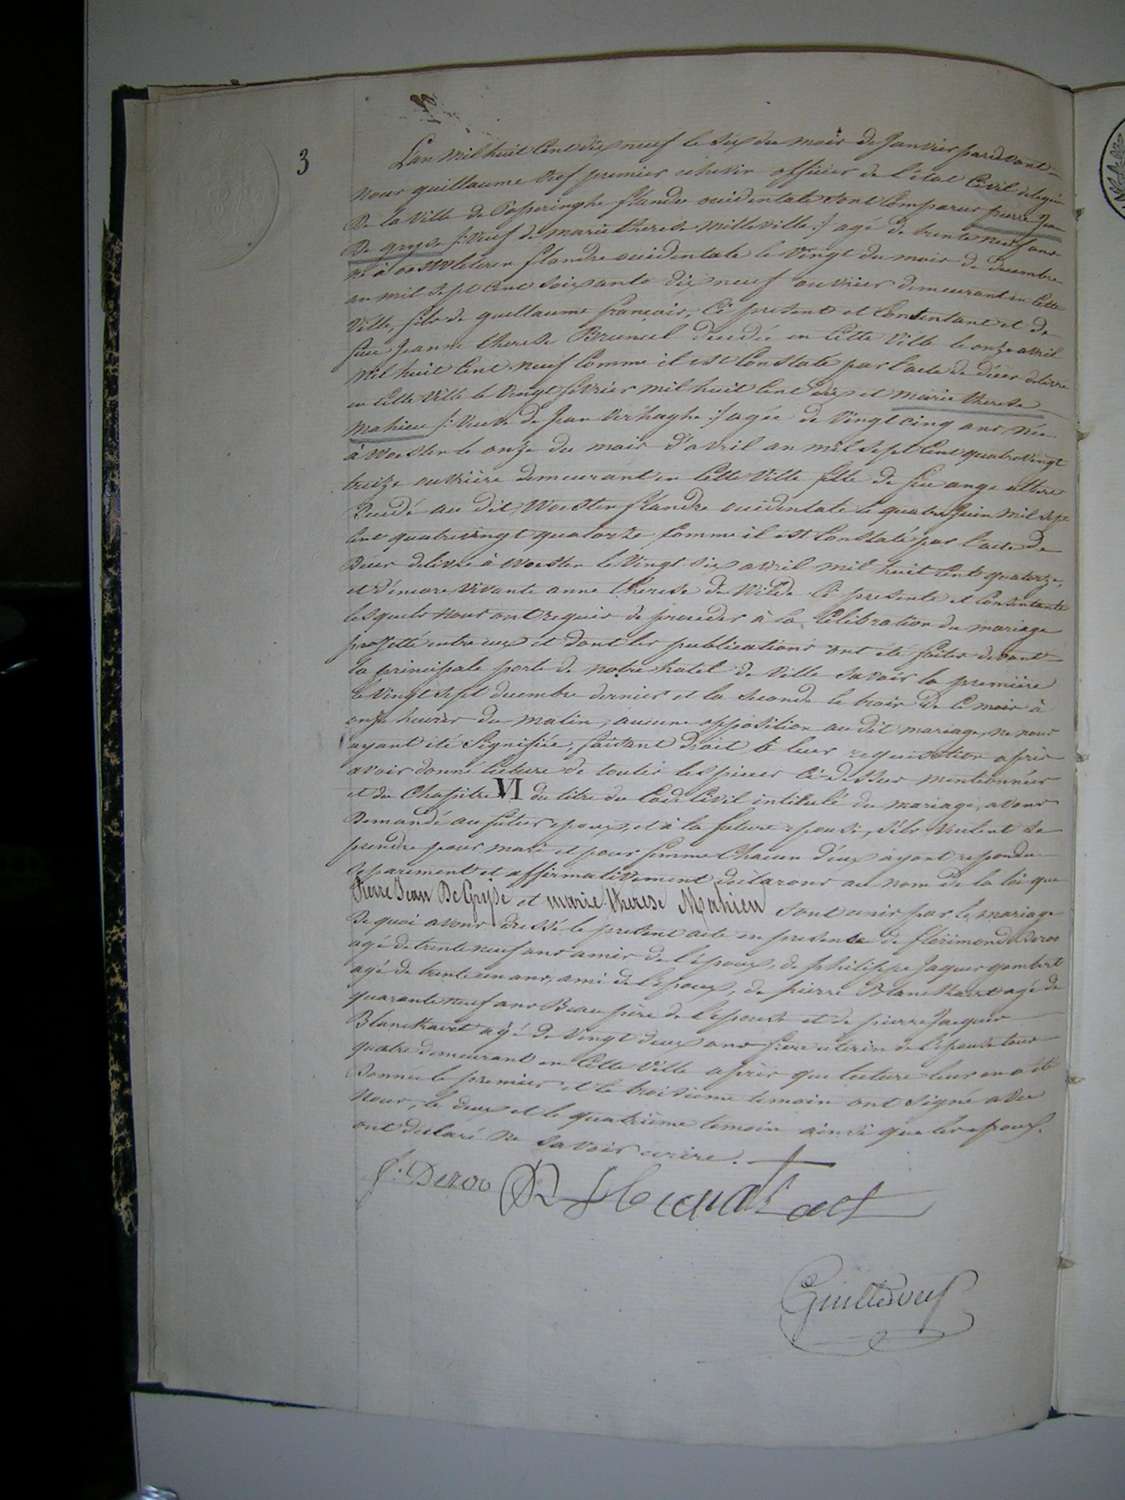 3
L'an mil huit cent dix neuf le six du mois de Janvier pardevant
nous guillaume Vesf premier echevin officier de l'état Civil delegué
De la Ville de Poperinghe flandre occidentale sont comparus pierre Jean
De gryse /: veuf de marie therese Milleville :/ agé de trente neuf ans
né à oostvleteren flandre occidentale le Vingt du mois de decembre
an mil sept cent soixante dix neuf ouvrier demeurant en cette
Ville, fils de guillaume francois, ci présent et consentant et de
feue Jeanne therese Bruneel decedée en cette Ville le onze avril
mil huit cent neuf comme il est constaté par l'acte de décès délivré
en cette Ville le Vingt fevrier mil huit cent dix et marie therese
Mahieu /: Veuve de Jean Verhaghe :/ agée de Vingt cinq ans, née
à Woesten le onze du mois d'avril an mil sept cent quatrevingt
treize ouvrière demeurant en cette Ville fille de feu ange albert
decédé au dit Woesten flandre occidentale le quatre Juin mil sept
cent quatrevingt quatorze comme il est constaté par l'acte de
Décès délivré à Woesten le Vingt six avril mil huit cent quatorze,
et d'encore vivante anne therese de Wilde ci présente et consentante
lesquels nous ont requis de proceder à la Célébration du mariage
projetté entre eux et dont les publications ont été faites devant
la principale porte de notre hotel de Ville savoir la première
le Vingt sept decembre dernier et la seconde le trois de ce mois à
onze heures du matin; aucune opposition au dit mariage, ne nous
ayant été signifiée, faisant droit à leur requisition après
avoir donné lecture de toutes les pieces ci-dessus mentionnées
et du Chapitre VI du titre du Code Civil intitulé du mariage, avons
demandé au futur epoux, et à la future epouse, s'ils veulent se
prendre pour mari et pour femme chacun d'eux ayant repondu
separement et affirmativement declarons au nom de la loi que
Pierre Jean De Gryse et marie therese Mahieu sont unis par le mariage
De quoi avons dressé le present acte en presence de florimond Deroo
agé de trente neuf ans amis de l'epoux, de philippe Jaques gombert
agé de trente un ans, ami de l'epoux, de pierre Blanckaert agé de
quarante neuf ans Beau père de l'epouse et de pierre Jacques
Blanckaert agé de Vingt deux ans frère uterin de l'epouse tous
quatre demeurant en cette Ville après que lecture leur en a été
Donnée le premier et le troisieme temoin ont signé avec
Nous, le deux et le quatrième temoin ainsi que les epoux.
ont declaré ne savoir écrire.
f. Deroo